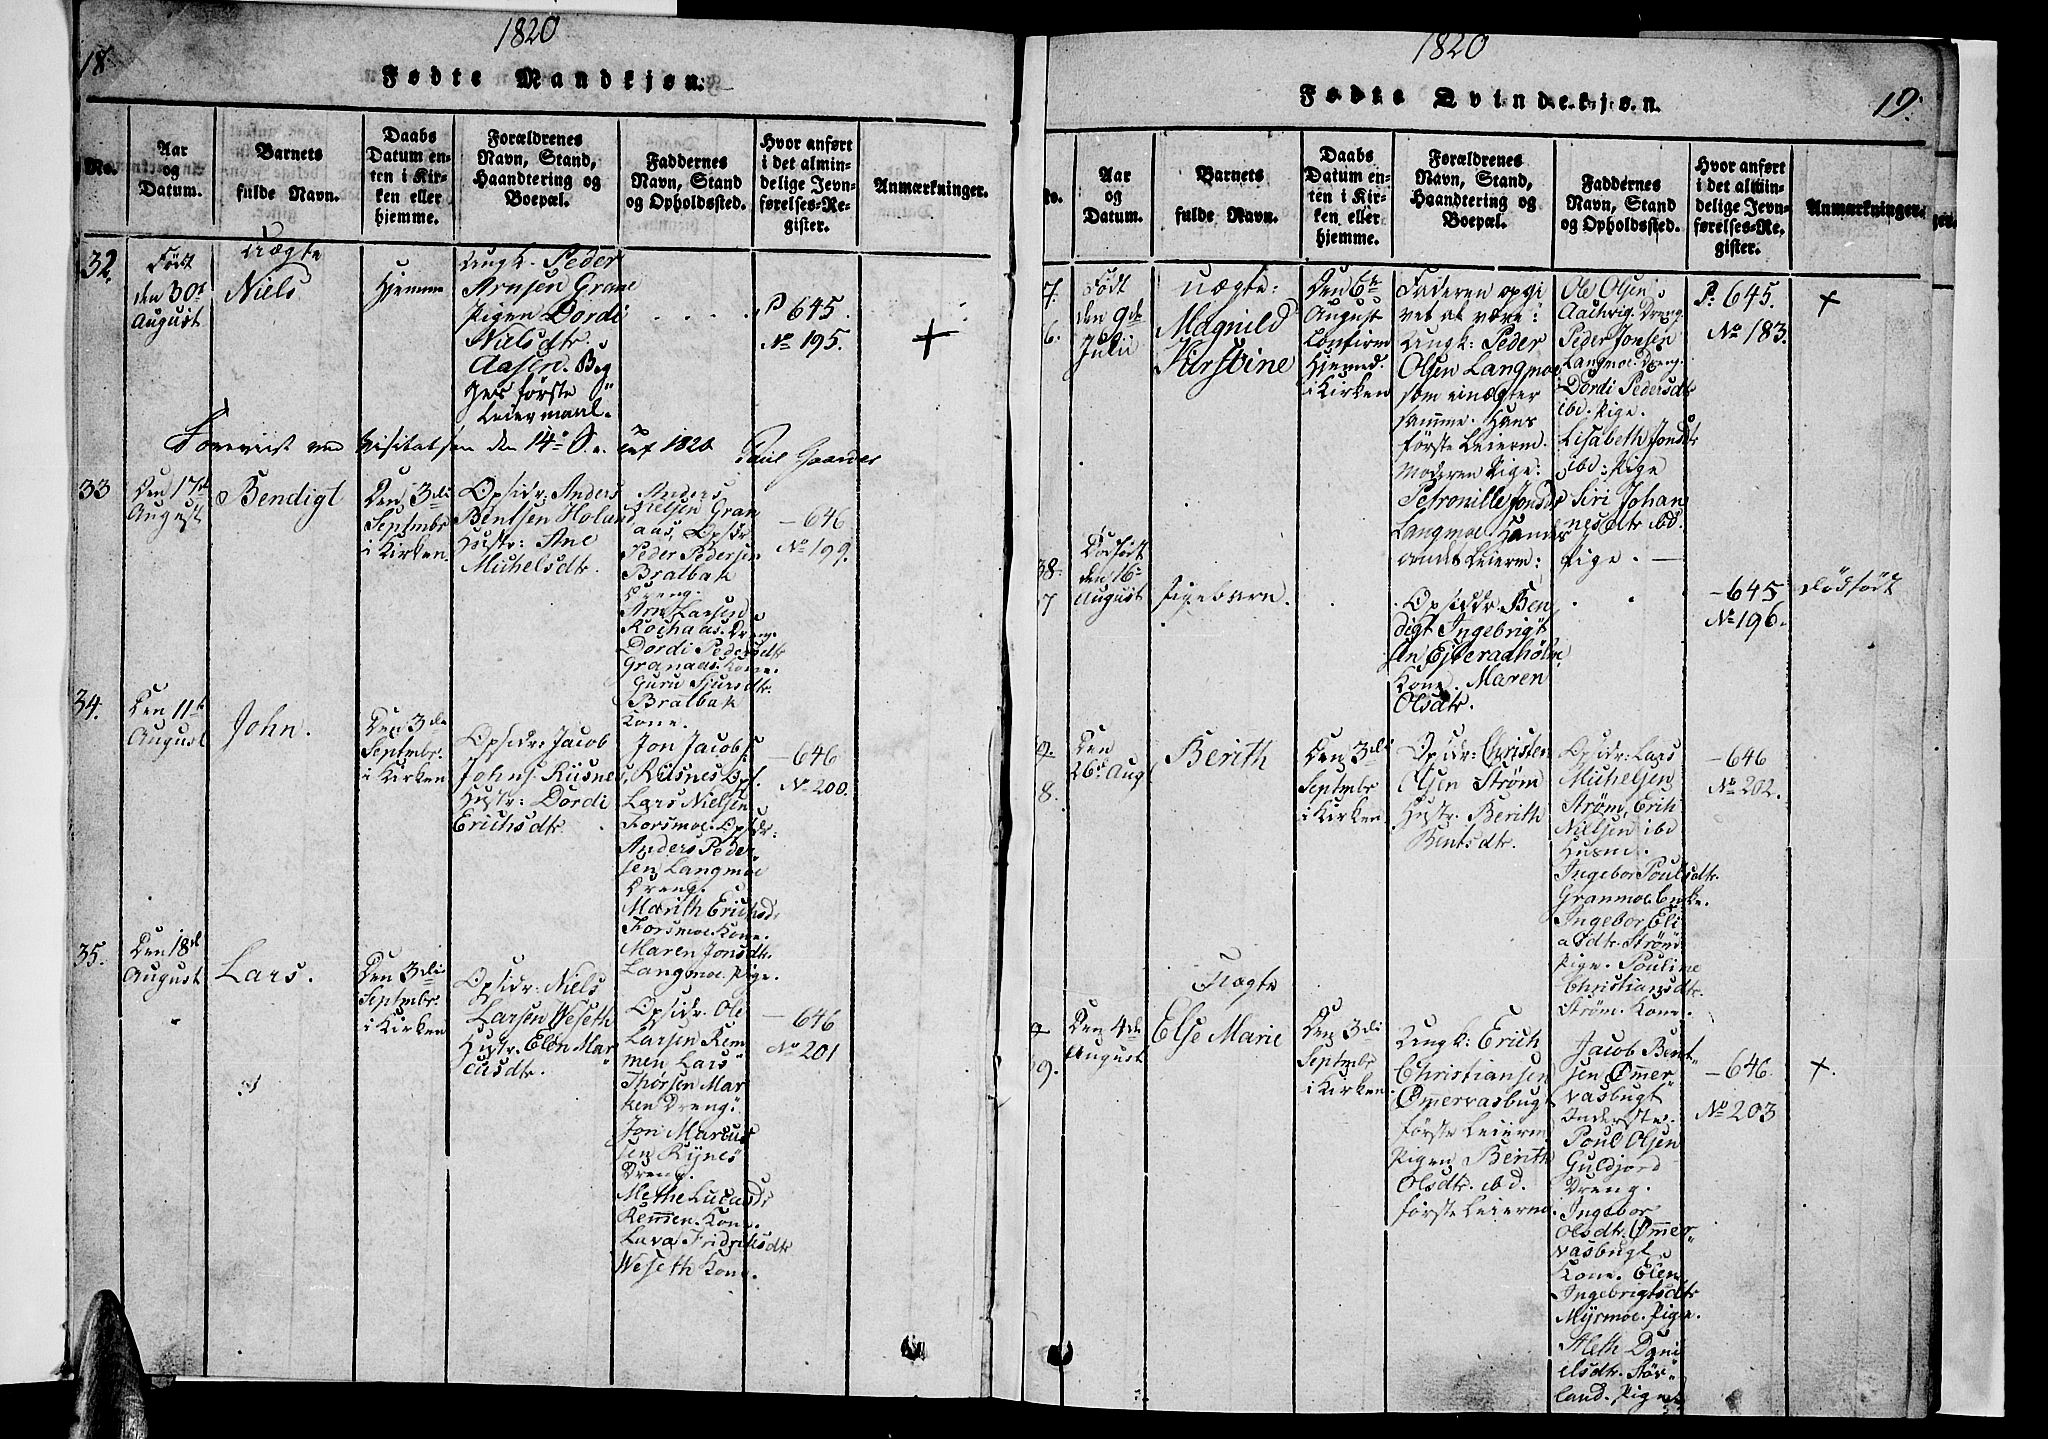 18.
1820
Fødte Mandkjøn.
No.
Aar
og
Datum.
Barnets
fulde Navn.
Daabs
Datum en-
ten i Kir-
ken eller
hjemme.
Forældrenes
Navn, Stand,
Haandtering og
Boepæl.
Faddernes
Navn, Stand
og Opholdssted.
Hvor anført
i det almin-
delige Jevn-
førelses-Re-
gister.
Anmærkninger.
32.
Født
den 30te
August
Uægte
Niels
Hjemme
Ungk. Peder
Arnsen Grane
Pigen Dordi
Nielsdtr.
Aasen. Beg
ges første
Leiermaal.
P 645.
No 195.
+
den 14de
1820
33
Den 17de
August
Bendigt
Den 3die
Septembr
i Kirken.
Opsidr: Anders
Bentsen Holand
Hustr: Ane
Michelsdtr.
Anders
Nielsen Gran
aas, Opsidr
Peder Pedersen
Bralbak
Dreng.
Arn Larsen
Dreng.
Dordi Pedersdtr
Granaas. Kone.
Guru Sjursdtr.
Bralbak
Kone.
- 646
No 199.
34.
Den 11te
August
John.
Den 3die
Septembr.
i Kirken
Opsidr: Jacob
Johns. Riisnes
Hustr: Dordi
Erichsdtr.
Jon Jacobs.
Riisnes Ops.
Lars Nielsen
Forsmoe. Opsidr.
Anders Peder-
sen Langmoe
Dreng.
Marith Erichsd.
Forsmoe. Kone.
Maren Jonsdtr.
Langmoe. Pige.
- 646
No 200.
35.
Den 18de
August
Lars.
Den 3die
Septembr.
i Kirken
Opsidr: Niels
Larsen Weseth
Hustr. Elen Mar-
cusdtr.
Opsidr. Ole
Larsen Rem
men Lars
Thorsen Mar
ken Dreng.
Jon Marcus
sen Rynes
Dreng.
Methe Lucasdr
Remmen. Kone.
Lava Fridriksdtr
Weseth Kone.
- 646
No 201
1820
Fødte Qvindekjøn.
19.
No.
Aar
og
Datum.
Barnets
fulde Navn.
Daabs
Datum en-
ten i Kir-
ken eller
hjemme.
Forældrenes
Navn, Stand,
Haandtering og
Boepæl.
Faddernes
Navn, Stand
og Opholdssted.
Hvor anført
i det almin-
delige Jevn-
førelses-Re-
gister.
Anmærkninger.
7.
6.
Født
den 9de
Julii
Uægte:
Magnild
Kirstine
Den 6te
August
Confirm
Hjemmed.
i Kirken
Faderen opgi
vet at være:
Ungk: Peder
Olsen Langmoe
som
samme. Hans
første Leierm.
Moderen Pige:
Petronille Jonsdr
Langmoe. Hendes
andet Leierm:
Ole Olsen
Dreng.
Peder Jonsen
Langmoe. Dreng.
Dordi Pedersdtr
ibd. Pige.
Lisabeth Jonsdtr
ibd: Pige
Siri Johan
nesdtr ibd.
Pige.
P: 645.
No 183.
+
38.
7
Dødfødt
den 16de
August
Pigebarn.
Opsiddr: Ben
digt Ingebrigt
sen
Kone. Maren
Olsdtr.
- 645
No 196.
dødfødt
9.
8.
Den
26de Aug
Berith
Den 3die
Septembr
i Kirken
Opsidr: Christen
Olsen Strøm
Hustr. Berith
Bentsdtr.
Opsidr: Lars
Michelsen
Strøm, Erik
Nielsen ibd
Husmd.
Ingebor Poulsdtr.
Granmoe Enke.
Ingebor Eli
asdtr. Strøm
Pige. Pouline
Christiansdtr.
Strøm. Kone.
- 646
No 202.
9.
Den 4de
August
Uægte
Else Marie
Den 3die
Septembr
i Kirken
Ungk: Erich
Christiansen
Ømervasbugt
første Leierm
Pigen Berith
Olsdtr. ibd.
første Leierm.
Jacob Bent-
sen Ømer-
vasbugt
Inderste.
Poul Olsen
Guldjord
Dreng.
Ingebor
Olsdtr. Ømer-
vasbugt
Kone. Elen
Ingebrigtsdtr
Myrmoe. Pige.
Aleth Dani
elsdtr. Stor-
land. Pige.
- 646
No 203
+.